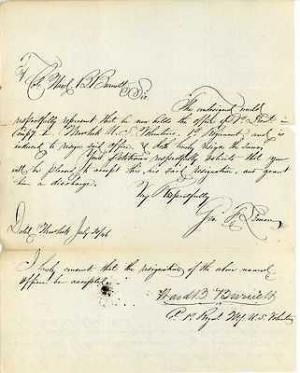 To Col Ward B. Burnett
Sir
The undersigned would
respectfully represent that he now holds the office of Lieut in
Compy U. S. Volunteers, 1st Regiment and is
induced to resign said office & doth hereby resign the same.
Your petitioner respectfully solicits that you
will be pleased to accept this his said resignation, and grant
him a discharge.
Very Respectfully
Geo.
Dated July
I hereby consent that the resignation of the above named
officer be accepted
Ward B. Burnett
Regt N.Y. U. S.